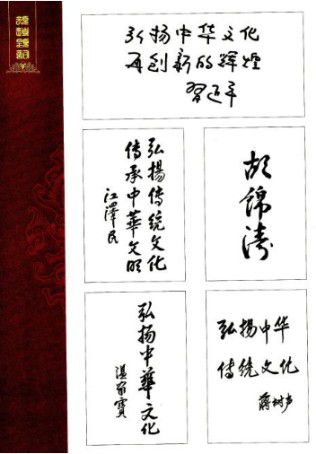 弘扬中华文化
再创新的辉煌
習近平
弘揚传統文化
传承中華文明
江澤民
胡锦涛
弘扬中華文化
温家寶
弘扬中华
传统文化
蒋树声